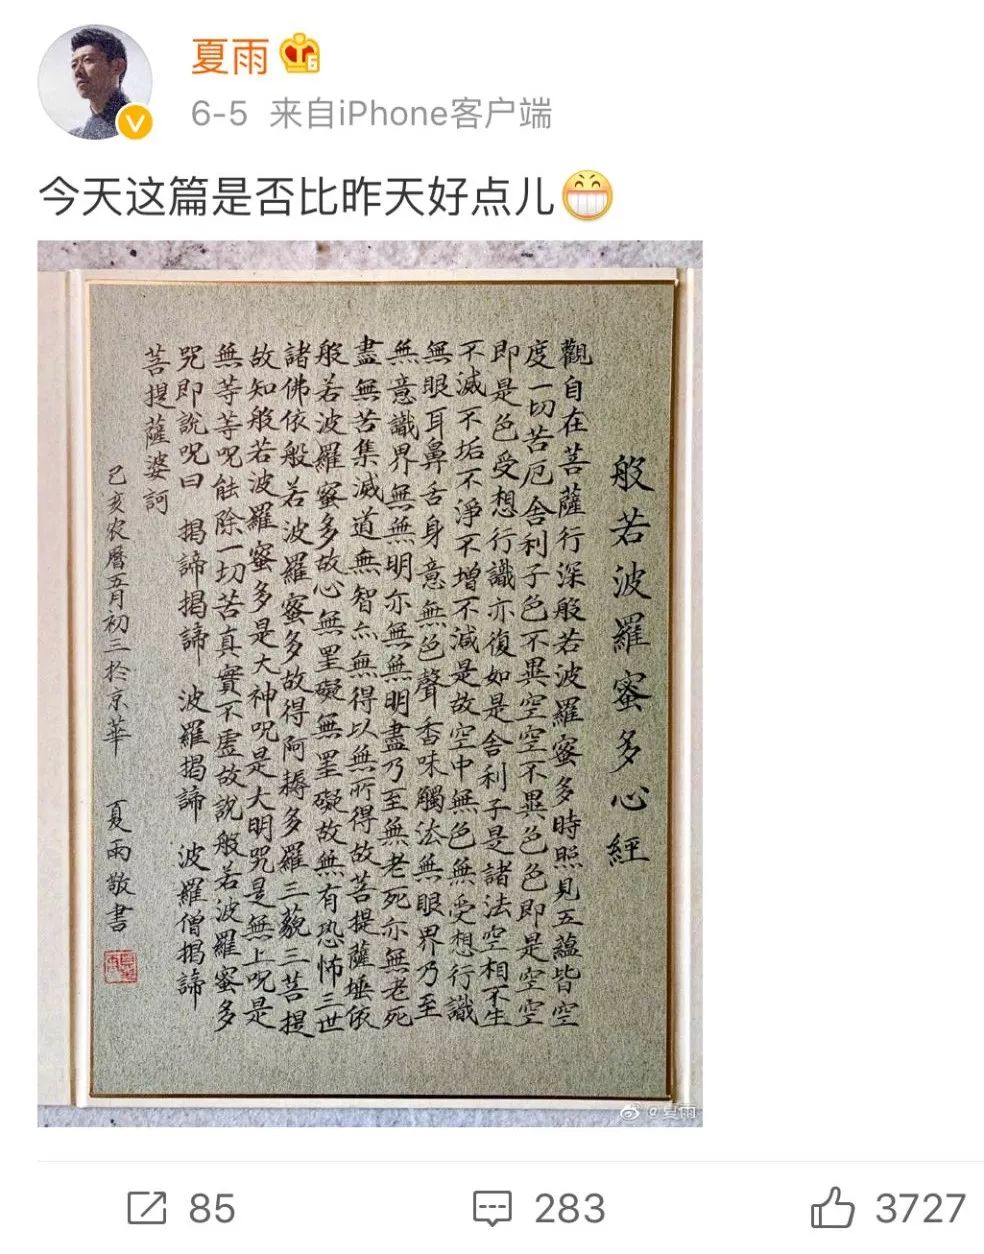 夏雨
6-5 来自iPhone客户端
今天这篇是否比昨天好点儿😁
般若波羅蜜多心經
觀自在菩薩行深般若波羅蜜多時照見五蘊皆空
度一切苦厄舍利子色不異空空不異色色即是空空
即是色受想行識亦復如是舍利子是諸法空相不生
不滅不垢不淨不增不減是故空中無色無受想行識
無眼耳鼻舌身意無色聲香味觸法無眼界乃至
無意識界無無明亦無無明盡乃至無老死亦無老死
盡無苦集滅道無智亦無得以無所得故菩提薩埵依
般若波羅蜜多故心無罣礙無罣礙故無有恐怖三世
諸佛依般若波羅蜜多故得阿耨多羅三藐三菩提
故知般若波羅蜜多是大神呪是大明咒是無上呪是
無等等呪能除一切苦真實不虛故說般若波羅蜜多
咒即說呪曰 揭諦揭諦 波羅揭諦 波羅僧揭諦
菩提薩婆訶
己亥农曆五月初三於京華 夏雨敬書
@夏雨
85 283 3727